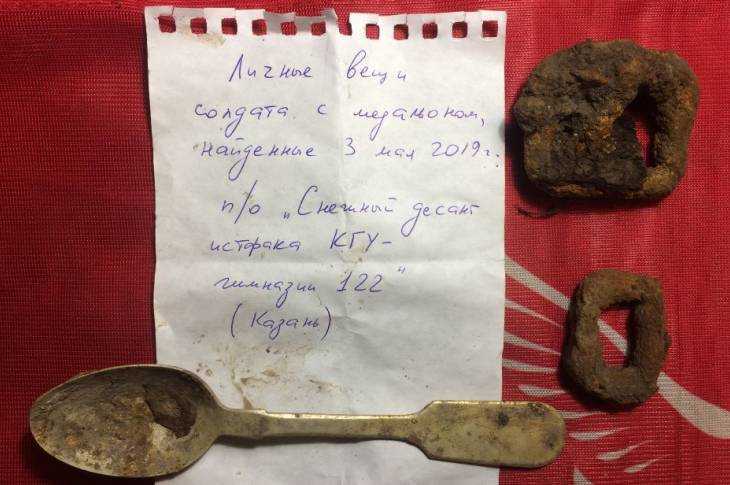 Личные вещи
солдата с медальоном,
найденные 3 мая 2019г.
п/о „Снежный десант
истфака КГУ-
гимназии 122"
(Казань)